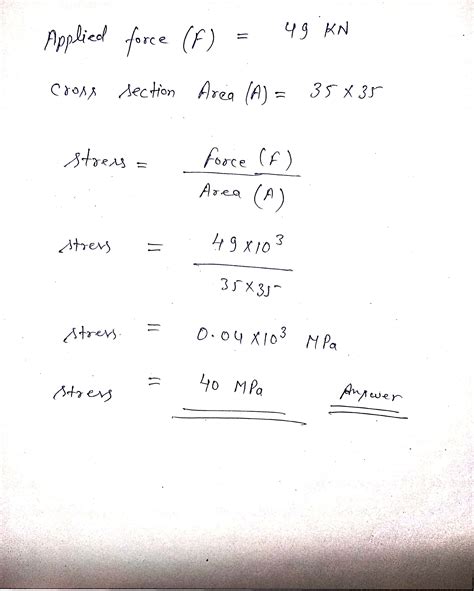 Applied force (F) = 49 KN
Cross section Area (A) = 35 × 35
Stress = Force (F)
Area (A)
Stress = 49 × 10³
35 × 35
Stress = 0.04 × 10³ MPa
Stress = 40 MPa Answer